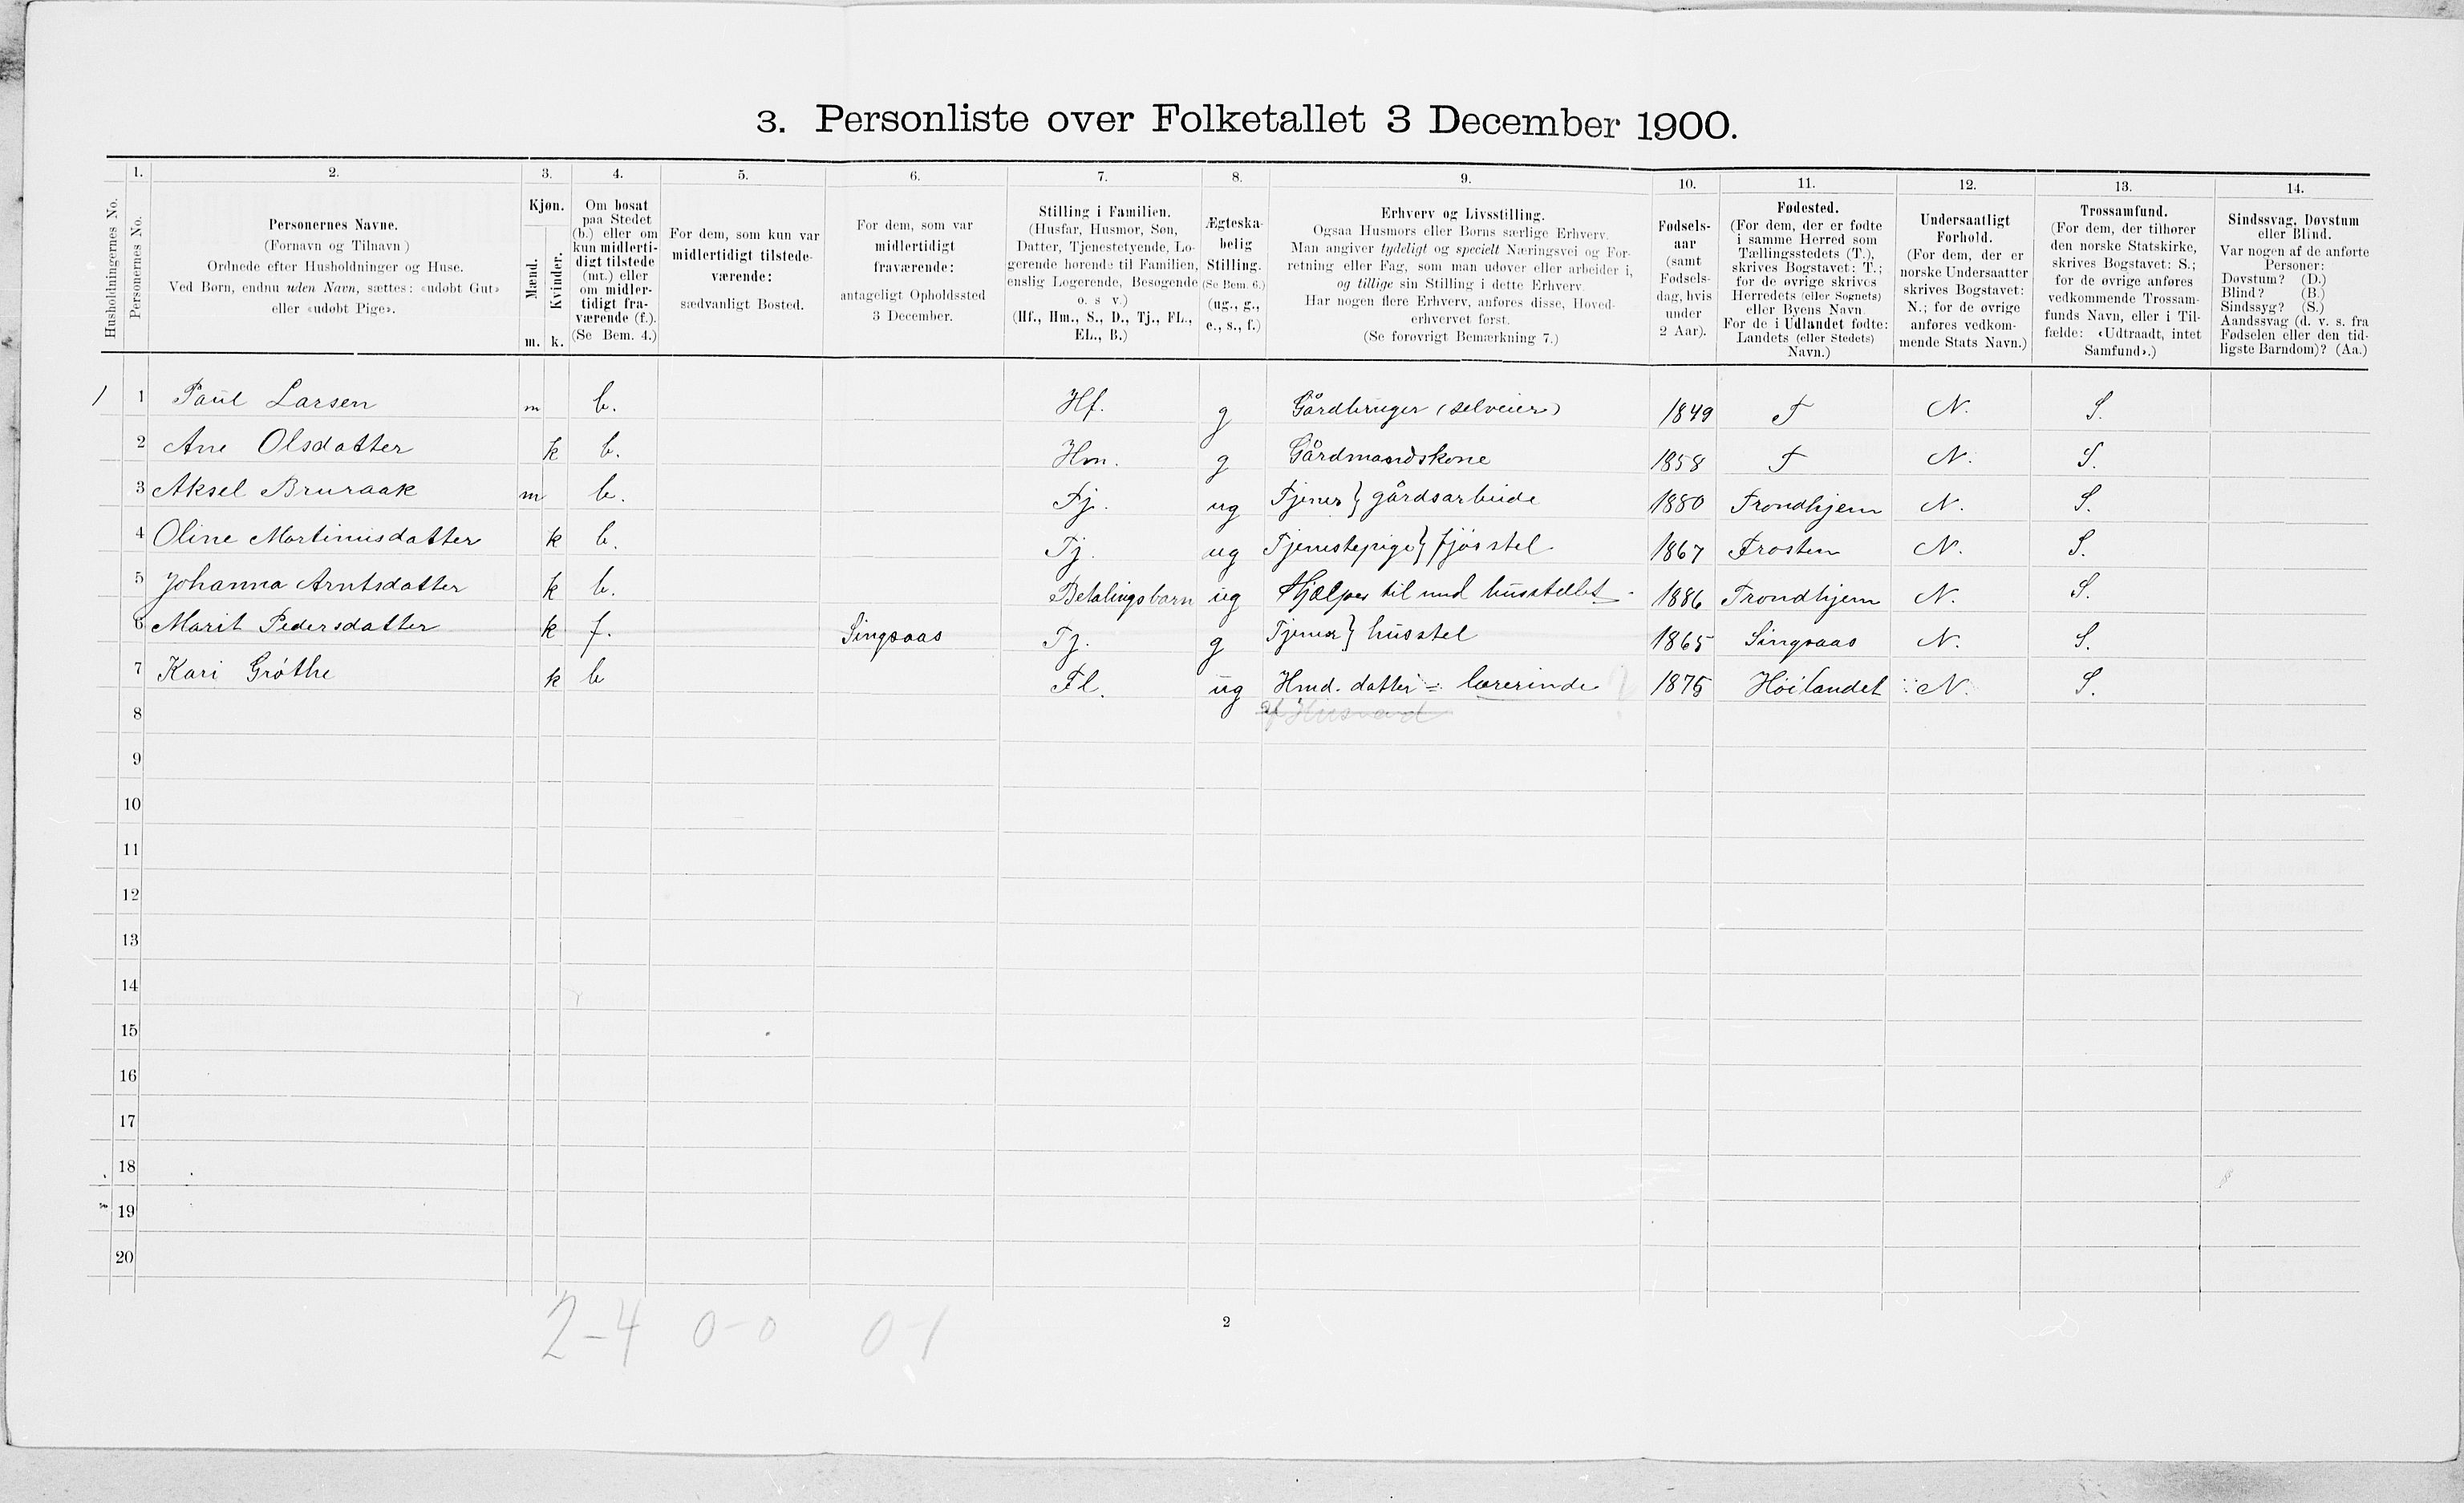 3. Personliste over Folketallet 3 December 1900.
Husholdningernes No.
1.
Personernes No.
2.
Personernes Navne.
(Fornavn og Tilnavn)
Ordnede efter Husholdninger og Huse.
Ved Børn, endnu uden Navn, sættes: «udøbt Gut»
eller «udøbt Pige».
3.
Kjøn.
Mænd.
Kvinder.
m. k.
4.
Om bosat
paa Stedet
(b.) eller om
kun midlerti-
digt tilstede
(mt.) eller
om midler-
tidigt fra-
værende (f.).
(Se Bem. 4.)
5.
For dem, som kun var
midlertidigt tilstede-
værende:
sædvanligt Bosted.
6.
For dem, som var
midlertidigt
fraværende:
antageligt Opholdssted
3 December.
7.
Stilling i Familien.
(Husfar, Husmor, Søn,
Datter, Tjenestetyende, Lo-
gerende hørende til Familien,
enslig Logerende, Besøgende
o. s v.)
(Hf., Hm., S., D., Tj., FL.,
EL., B.)
8.
Ægteska-
belig
Stilling.
(Se Bem. 6.)
(ug., g.,
e., s., f.)
9.
Erhverv og Livsstilling.
Ogsaa Husmors eller Børns særlige Erhverv.
Man angiver tydeligt og specielt Næringsvei og For-
retning eller Fag, som man udøver eller arbeider i,
og tillige sin Stilling i dette Erhverv.
Har nogen flere Erhverv, anføres disse, Hoved-
erhvervet først.
(Se forøvrigt Bemærkning 7.)
10.
Fødsels-
aar
(samt
Fødsels-
dag, hvis
under
2 Aar).
11.
Fødested.
(For dem, der er fødte
i samme Herred som
Tællingsstedets (T.),
skrives Bogstavet: T.;
for de øvrige skrives
Herredets (eller Sognets)
eller Byens Navn.
For de i Udlandet fødte:
Landets (eller Stedets)
Navn.)
12.
Undersaatligt
Forhold.
(For dem, der er
norske Undersaatter
skrives Bogstavet:
N.; for de øvrige
anføres vedkom-
mende Stats Navn.)
13.
Trossamfund.
(For dem, der tilhører
den norske Statskirke,
skrives Bogstavet: S.;
for de øvrige anføres
vedkommende Trossam-
funds Navn, eller i Til-
fælde: «Udtraadt, intet
Samfund».)
14.
Sindssvag, Døvstum
eller Blind.
Var nogen af de anførte
Personer:
Døvstum? (D.)
Blind? (B.)
Sindssyg? (S.)
Aandssvag (d. v. s. fra
Fødselen eller den tid-
ligste Barndom)? (Aa.)
1 1 Paul Larsen m b. Hf. g Gårdbruger (selveier) 1849 T N. S.
2 Ane Olsdatter k b. Hm. g Gårdmandskone 1858 T N. S.
3 Aksel Bruraak m b. Tj. ug Tjener } gårdsarbeide 1880 Trondhjem N. S.
4 Oline Martinusdatter k b. Tj. ug Tjenestepige } fjøsstel 1867 Frosten N. S.
5 Johanna Arntsdatter k b. Betalingsbarn ug Hjælper til med husstellet 1886 Trondhjem N. S.
6 Marit Pedersdatter k f. Singsaas Tj. g Tjener } husstel 1865 Singsaas N. S.
7 Kari Grøthe k b Fl. ug Hmd. datter = lærerinde ? 1875 Høilandet N. S.
8
9
10
11
12
13
14
15
16
17
18
19
20
2-4 0-0 0-1
2